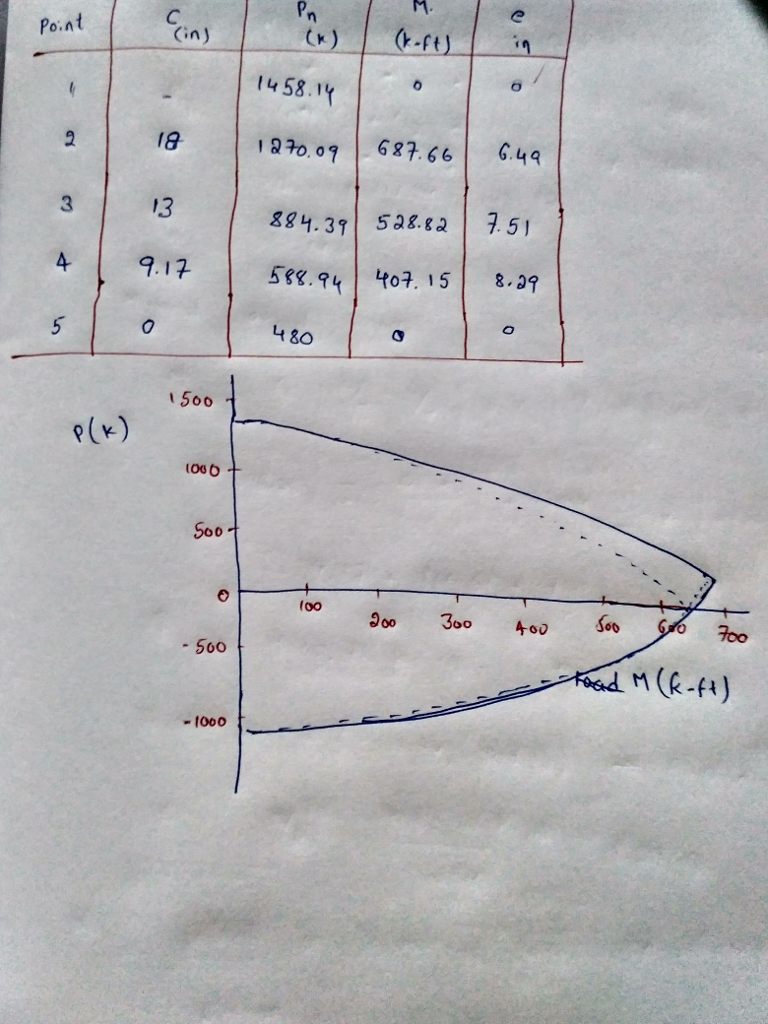 Point C (in) Pn (k) M. (k-ft) e in
1 - 1458.14 0 0
2 18 1270.09 687.66 6.49
3 13 884.39 528.82 7.51
4 9.17 588.94 407.15 8.29
5 0 480 0 0
1500
P(k)
1000
500
0
100 200 300 400 500 600 700
-500
M(k-ft)
-1000